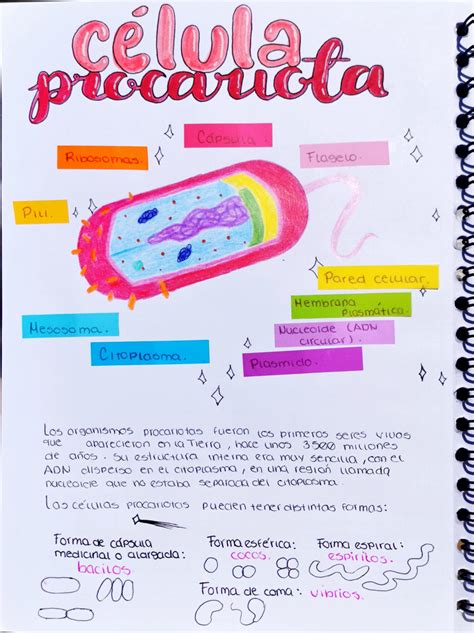 célula
procariota
Cápsula.
Ribosomas.
Flagelo.
Pili.
Pared celular.
Membrana
plasmática.
Mesosoma.
Nucleoide (ADN
circular).
Citoplasma.
Plasmido.
Los organismos procariotas fueron los primeros seres vivos
que aparecieron en la Tierra, hace unos 3500 millones
de años. Su estructura interna era muy sencilla, con el
ADN disperso en el citoplasma, en una región llamada
nucleoide que no estaba separada del citoplasma.
Las células procariotas pueden tener distintas formas:
Forma de cápsula
medicinal o alargada:
bacilos.
Forma esférica:
cocos.
Forma espiral:
espirilos.
Forma de coma: vibrios.